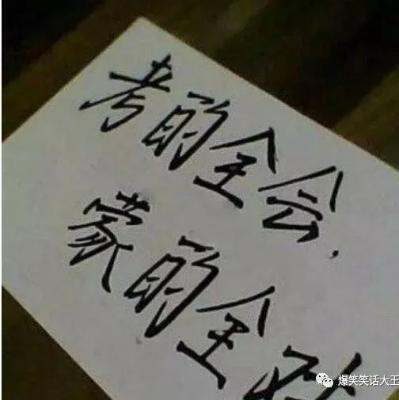 考的全会.
蒙的全
爆笑笑话大王